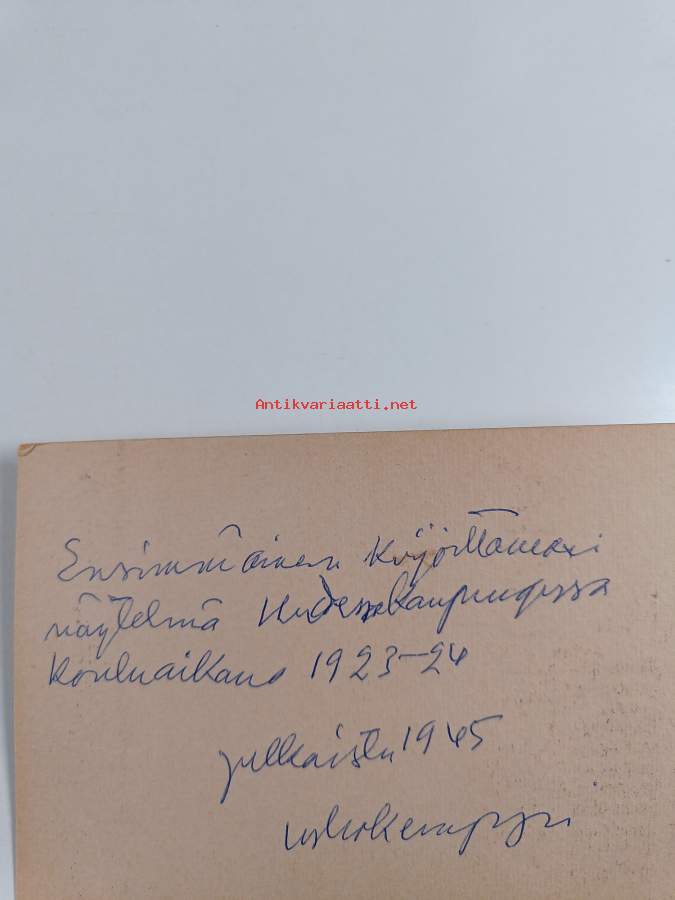 Antikvariaatti.net
Ensimmäinen kirjoittamani
näytelmä Uudessakaupungissa
kouluaikana 1923-24
julkaistu 1945
Urho Kemppi